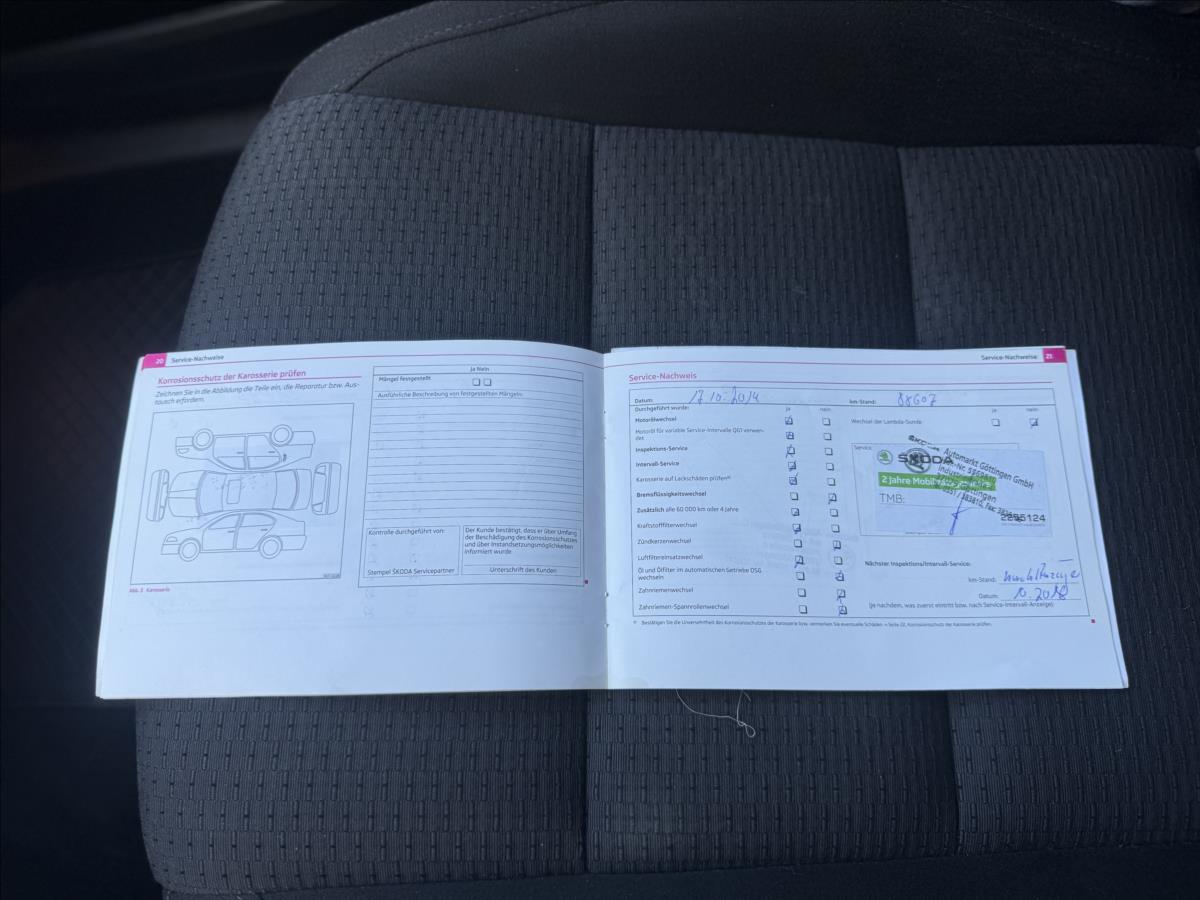 20 Service-Nachweise
Korrosionsschutz der Karosserie prüfen
Zeichnen Sie in die Abbildung die Teile ein, die Reparatur bzw. Aus-
tausch erfordern.
Abb. 3 Karosserie
Ja Nein
Mängel festgestellt
Ausführliche Beschreibung von festgestellten Mängeln:
Kontrolle durchgeführt von:
Stempel ŠKODA Servicepartner
Der Kunde bestätigt, dass er über Umfang
der Beschädigung des Korrosionsschutzes
und über Instandsetzungsmöglichkeiten
informiert wurde.
Unterschrift des Kunden
Service-Nachweise 21
Service-Nachweis
Datum: 17.10.2014
km-Stand: 88607
Durchgeführt wurde: ja nein
Motorölwechsel
Motoröl für variable Service-Intervalle QG1 verwen-
det
Inspektions-Service
Intervall-Service
Karosserie auf Lackschäden prüfen
Bremsflüssigkeitswechsel
Zusätzlich alle 60 000 km oder 4 Jahre
Kraftstofffilterwechsel
Zündkerzenwechsel
Luftfiltereinsatzwechsel
Öl und Ölfilter im automatischen Getriebe DSG
wechseln
Zahnriemenwechsel
Zahnriemen-Spannrollenwechsel
ja nein
Wechsel der Lambda-Sonde
Service
ŠKODA
Automarkt Göttingen GmbH
2 Jahre
TMB:
2295124
Nächster Inspektions/Intervall-Service:
km-Stand:
Datum:
(je nachdem, was zuerst eintritt bzw. nach Service-Intervall-Anzeige)
Bestätigen Sie die Unversehrtheit des Korrosionsschutzes der Karosserie bzw. vermerken Sie eventuelle Schäden → Seite 22, Korrosionsschutz der Karosserie prüfen.